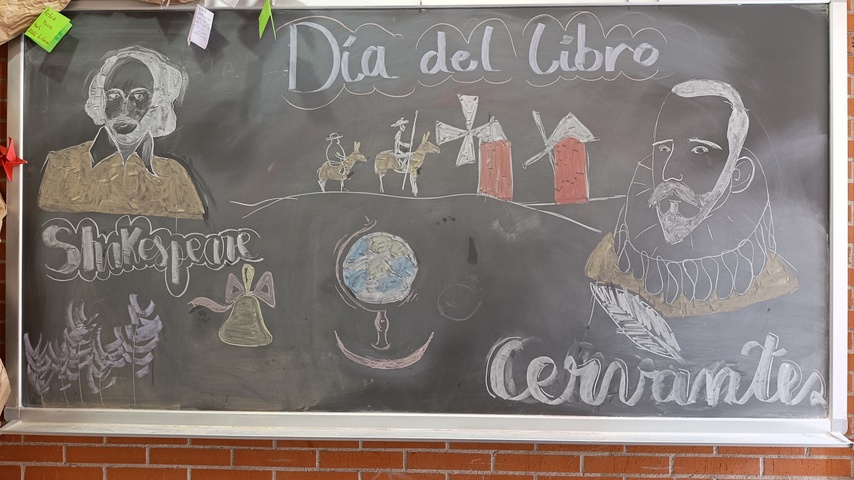 Día del libro
Shakespeare
Cervantes